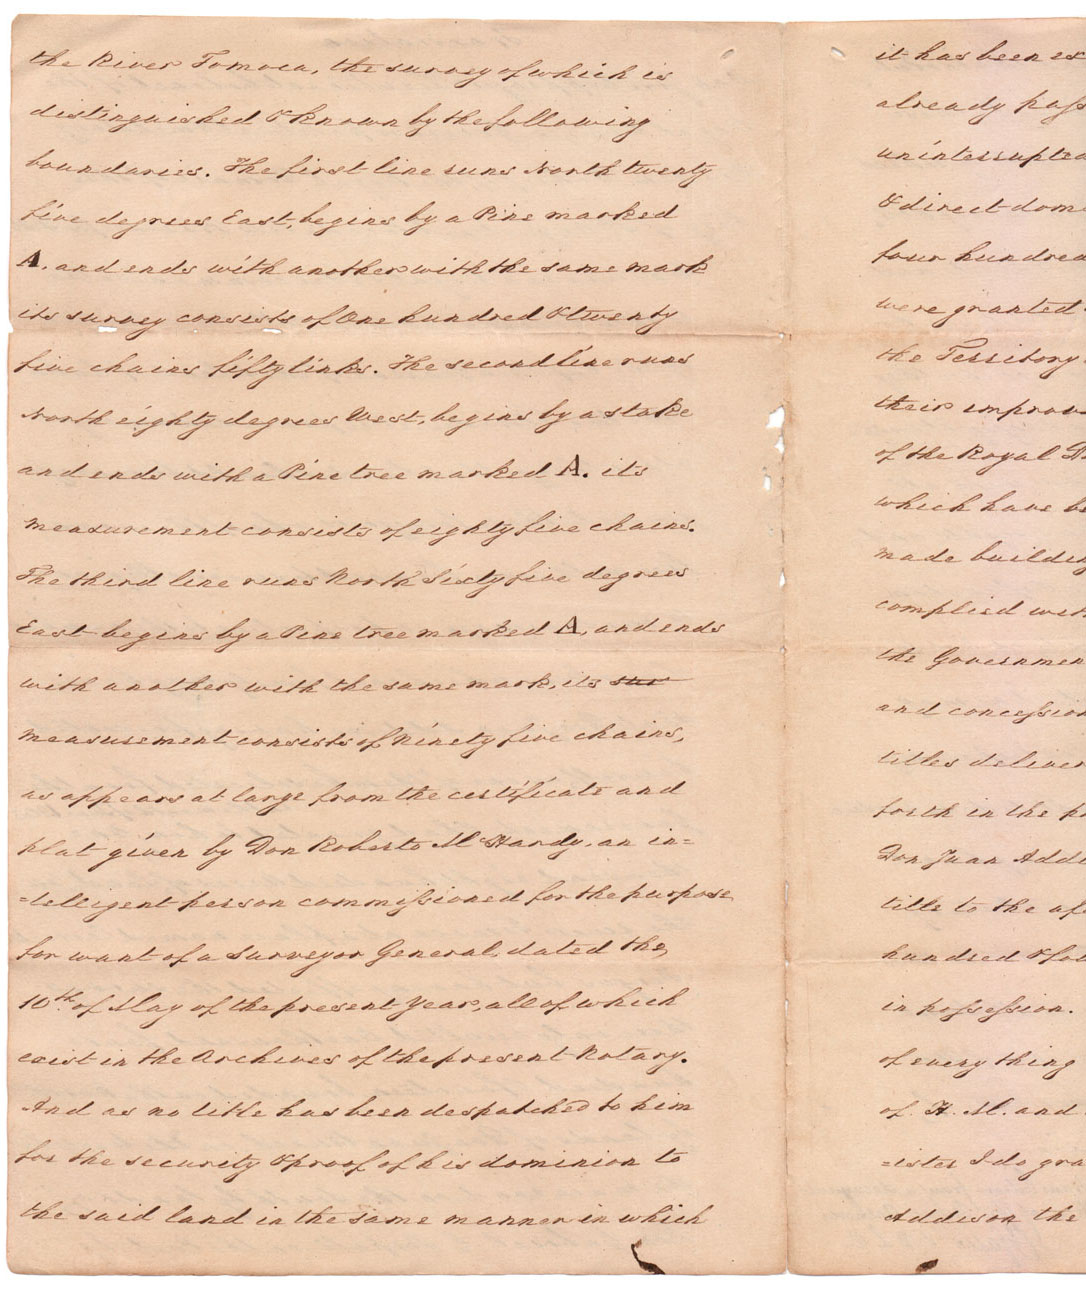 the River Tomoca, the survey of which is
distinguished & known by the following
boundaries. The first line runs North twenty
five degrees East, begins by a Pine marked
A. and ends with another with the same mark
its survey consists of One hundred & twenty
five chains fifty links. The second line runs
North eighty degrees West, begins by a stake
and ends with a Pine tree marked A. its
measurement consists of eighty five chains.
The third line runs North Sixty five degrees
East begins by a Pine tree marked A, and ends
with another with the same mark, its sur
measurement consists of Ninety five chains,
as appears at large from the certificate and
plat given by Don Roberto McHardy, an in=
=telligent person commissioned for the purpose
for want of a Surveyor General, dated the
10th. of May of the present Year, all of which
exist in the Archives of the present Notary.
And as no title has been despatched to him
for the security & proof of his dominion to
the said land in the same manner in which
it has been ex
already pass
uninterrupted
& direct dom
four hundred
were granted
the Territory
their improv
of the Royal
which have be
made building
complied with
the Governmen
and concession
titles deliver
forth in the
Don Juan Addi
title to the af
hundred & fou
in possession.
of every thing
of H. M. and
=ister I do gra
Addison the